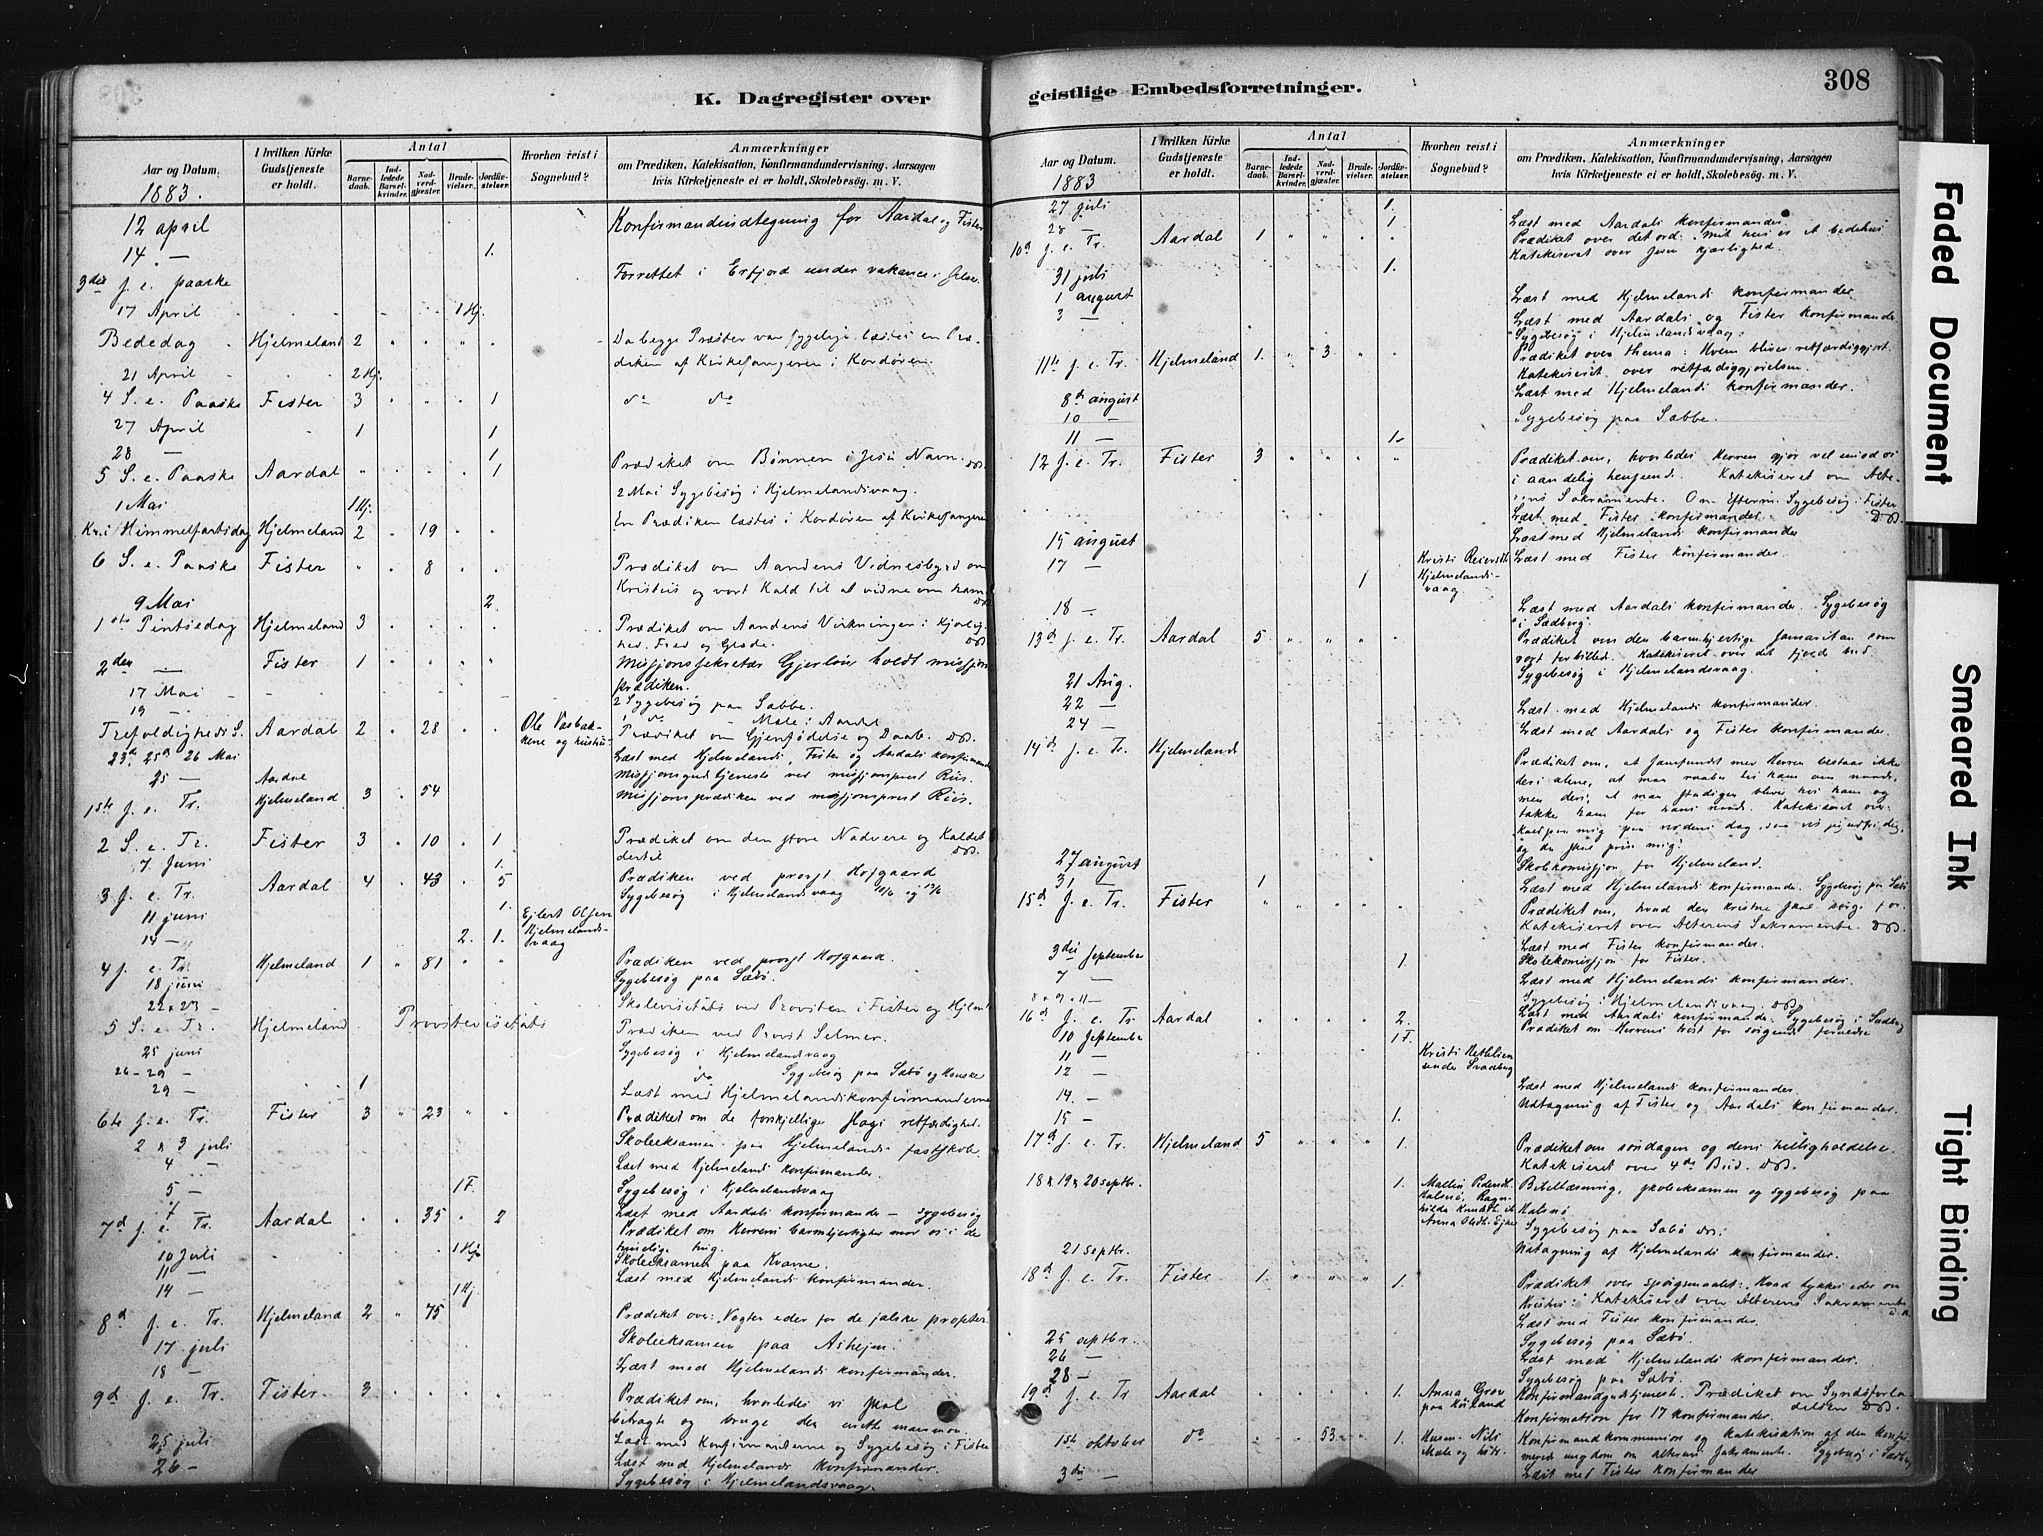 K. Dagregister over
geistlige Embedsforretninger.
308
Aar og Datum.
1883.
I hvilken Kirke Gudstjeneste er holdt.
Antal
Barnedaab.
Indledede Barselkvinder.
Nadverdgjæster.
Brudevielser.
Jordfæstelser.
Hvorhen reist i Sognebud?
Anmærkninger
om Prædiken, Katekisation, Konfirmandundervisning, Aarsagen
hvis Kirketjeneste ei er holdt, Skolebesøg. m. V.
12 april Konfirmandindtegning for Aardal og Fister
14 — 1.
3die s. e. paaske Forrettet i Erfjord under vakance i Jelse.
17 April 1 Hj.
Bededag Hjelmeland 2 Da begge Præster var sygelige læstes en Præ-
diken af Kirkesangeren i Kordøren.
21 April 2 Hj.
4 S. e. Paaske Fister 3 1 do do
27 April 1 1
28 — 1
5 S. e. Paaske Aardal " 1 Prædiket om Bønnen i Jesu Navn.
1 Mai 1 Hj. 2 Mai Sygebesøg i Hjelmelandsvaag.
Kristi Himmelfartsdag Hjelmeland 2 19 En Prædiken læstes i Kordøren af Kirkesangeren
6 S. e. Paaske Fister " 8 Prædiket om Aandens Vidnesbyrd om
Kristus og vort Kald til at vidne om ham
9 Mai 2.
1ste Pintsedag Hjelmeland 3 Prædiket om Aandens Virkninger: Kjærlig-
hed, Fred og Glæde.
2den — Fister 1 Missjonssekretær Gjerløw holdt missjons
prædiken.
17 Mai 2 Sygebesøg paa Sæbbe.
19 —
Trefoldigheds S. Aardal 2 28 Ole Vasbak-
kene og hustru Prædiket om Gjenfødelse og Daab.
23de 25de 26 Mai Læst med Hjelmelands, Fister og Aardals konfirmander
25 — Aardal Missjonsgudstjeneste ved missjonsprest Riis.
1ste s. e. Tr. Hjelmeland 3 54 Missjonsprædiken ved missjonsprest Riis.
2 S. e. Tr. Fister 3 10 1 Prædiket om den store Nadvere og Kaldet
dertil
7 Juni 1.
3 s. e. Tr. Aardal 4 43 5 Prædiken ved provst Hofgaard
Sygebesøg i Hjelmelandsvaag
11 juni 1.
14 — 2. 1. Ejlert Olsen
Hjelmelands-
vaag
4 s. e. Tr. Hjelmeland 1 81 Prædiken ved provst Hofgaard.
18 juni Sygebesøg paa Sæbø.
22 & 23 — Skolevisitats ved Provsten i Fister og Hjelml.
5 S. e. Tr. Hjelmeland Provstevisitats Prædiken ved Provst Selmer.
25 juni Sygebesøg i Hjelmelandsvaag
26-29 — do Sygebesøg paa Sæbø og
29 — 1 Læst med Hjelmelandskonfirmanderne
6te s. e. Tr. Fister 3 23 Prædiket om de forskjellige slags retfærdighed.
2 & 3 juli Skoleeksamen paa Hjelmelands fastskole.
4 — Læst med Hjelmelands konfirmander.
5 — 1 F. Sygebesøg i Hjelmelandsvaag
7 — Læst med Aardals konfirmander — sygebesøg
7d s. e. Tr. Aardal 35 2 Prædiket om Herrens barmhjertighed mod os i de
10 Juli 1 Hj.
11 — Skoleeksamen paa Kvame.
14 — 1 Hj. Læst med Hjelmelands konfirmander.
8d s. e. Tr. Hjelmeland 2 75 Prædiket over: Vogter eder for de falske profeter.
17 juli Skoleeksamen paa
18 — Læst med Hjelmelands konfirmander.
9d s. e. Tr. Fister. 3 Prædiket om, hvorledes vi skal
betragte og bruge den urette mammon.
25 juli Læst med Konfirmanderne og Sygebesøg i Fister
26 — Læst med Hjelmelands konfirmander.
Sygebesøg i Hjelmelandsvaag.
Aar og Datum.
1883
I hvilken Kirke Gudstjeneste er holdt.
Antal
Barnedaab.
Indledede Barselkvinder.
Nadverdgjæster.
Brudevielser.
Jordfæstelser.
Hvorhen reist i Sognebud?
Anmærkninger
om Prædiken, Katekisation, Konfirmandundervisning, Aarsagen
hvis Kirketjeneste ei er holdt, Skolebesøg. m. V.
27 juli 1.
28 — 1 Læst med Aardals konfirmander
10d s. e. Tr. Aardal 1 Prædiket over det ord: Mit hus er et bedehus
Katekiseret over Jesu kjærlighed.
31 juli 1.
1 august Læst med Hjelmelands konfirmander
3 — Læst med Aardals og Fister konfirmander
Sygebesøg i Hjelmelandsvaag.
11te s. e. Tr. Hjelmeland 1. 3 Prædiket over thema: Hvem bliver retfærdiggjort.
Katekiseret over retfærdiggjørelsen.
8de august Læst med Hjelmelands konfirmander.
10 — Sygebesøg paa Sæbbe.
11 — 1.
12 s. e. Tr. Fister 3 Prædiket om, hvorledes Herren gjør vel imod os
i aandelig henseende. Katekiseret om Alte-
rens Sakramente. Om Efterm. Sygebesøg i Fister
Læst med Fister konfirmander
15 august Læst med Hjelmelands konfirmander
17 — 1 Kristi Reiersdtr.
Hjelmelands-
vaag Læst med Fister konfirmander.
18 — Læst med Aardals konfirmander. Sygebesøg
i Sædberg.
13d s. e. Tr. Aardal 5 Prædiket om den barmhjertige samaritan som
vort forbillede. Katekiseret over det fjerde bud.
Sygebesøg i Hjelmelandsvaag.
21 Aug.
22 — Læst med Hjelmelands konfirmander.
24 — Læst med Aardals og Fister konfirmander.
14d s. e. Tr. Hjelmeland Prædiket om, at samfundet med Herren bestaar ikke
deri alene, at man raaber til ham om naade,
men deri, at man stadigen bliver hos ham og
takker ham for hans naade. Katekiseret over:
kald paa mig paa nødens dag, saa vil jeg udfri dig,
og du skal prise mig.
27 august Skolekomission for Hjelmeland.
31 — 1 Læst med Hjelmelands konfirmander. Sygebesøg paa Sæbø
15d s. e. Tr. Fister Prædiket om, hvad den kristne skal sørge for.
Katekiseret over Alterens Sakramente.
Læst med Fister konfirmander.
3die september Skolekomissjon for Fister.
7 — 1. Læst med Hjelmelands konfirmander.
8 & 9 & 11 — Sygebesøg i Hjelmelandsvaag.
16d s. e. Tr. Aardal 2. Læst med Aardals konfirmander. Sygebesøg i Sædberg
Prædiket om Herrens røst for sørgende
10 September 1 F.
11 — Kristi
12 —
14 — Læst med Hjelmelands konfirmander.
15 — 1. Udtagning af Fister og Aardals konfirmander.
17d s. e. Tr. Hjelmeland 5 1. Prædiket om søndagen og dens helligholdelse.
Katekiseret over 4de Bud.
18 & 19 & 20 septbr. 1. Bibellæsning, skoleeksamen og sygebesøg paa
Halsnø
Sygebesøg paa Sæbø
21 septbr. Udtagning af Hjelmelands konfirmander.
18d s. e. Tr. Fister 1. 1. Prædiket over spørgsmaalet: Hvad tykkes eder om
Kristus. Katekiseret over Alterens Sakramente
Læst med Fister konfirmander.
25 septbr. Sygebesøg paa Sæbø.
26 — Læst med Hjelmelands konfirmander.
28 — Sygebesøg paa Sæbø.
19d s. e. Tr. Aardal 1. Anna Grov Konfirmandgudstjeneste. Prædiket om Syndsforla-
delsen
Konfirmation for 17 konfirmander.
1ste oktober do 53. 1. Nils Konfirmandkommunion og katekisation af den konfir-
merede ungdom om alterens sakrament. Sygebesøg i
3die — Læst med Fister konfirmander
Faded Document
Smeared Ink
Tight Binding